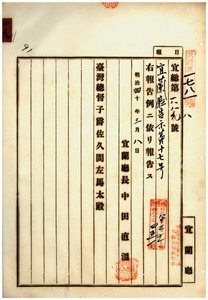 日報
宜總第一八九號
宜蘭廳告示第十七号
右報告例ニ依リ報告ス
明治四十年三月八日
宜蘭廳長中田直溫
臺灣總督子爵佐久間左馬太殿
宜蘭廳